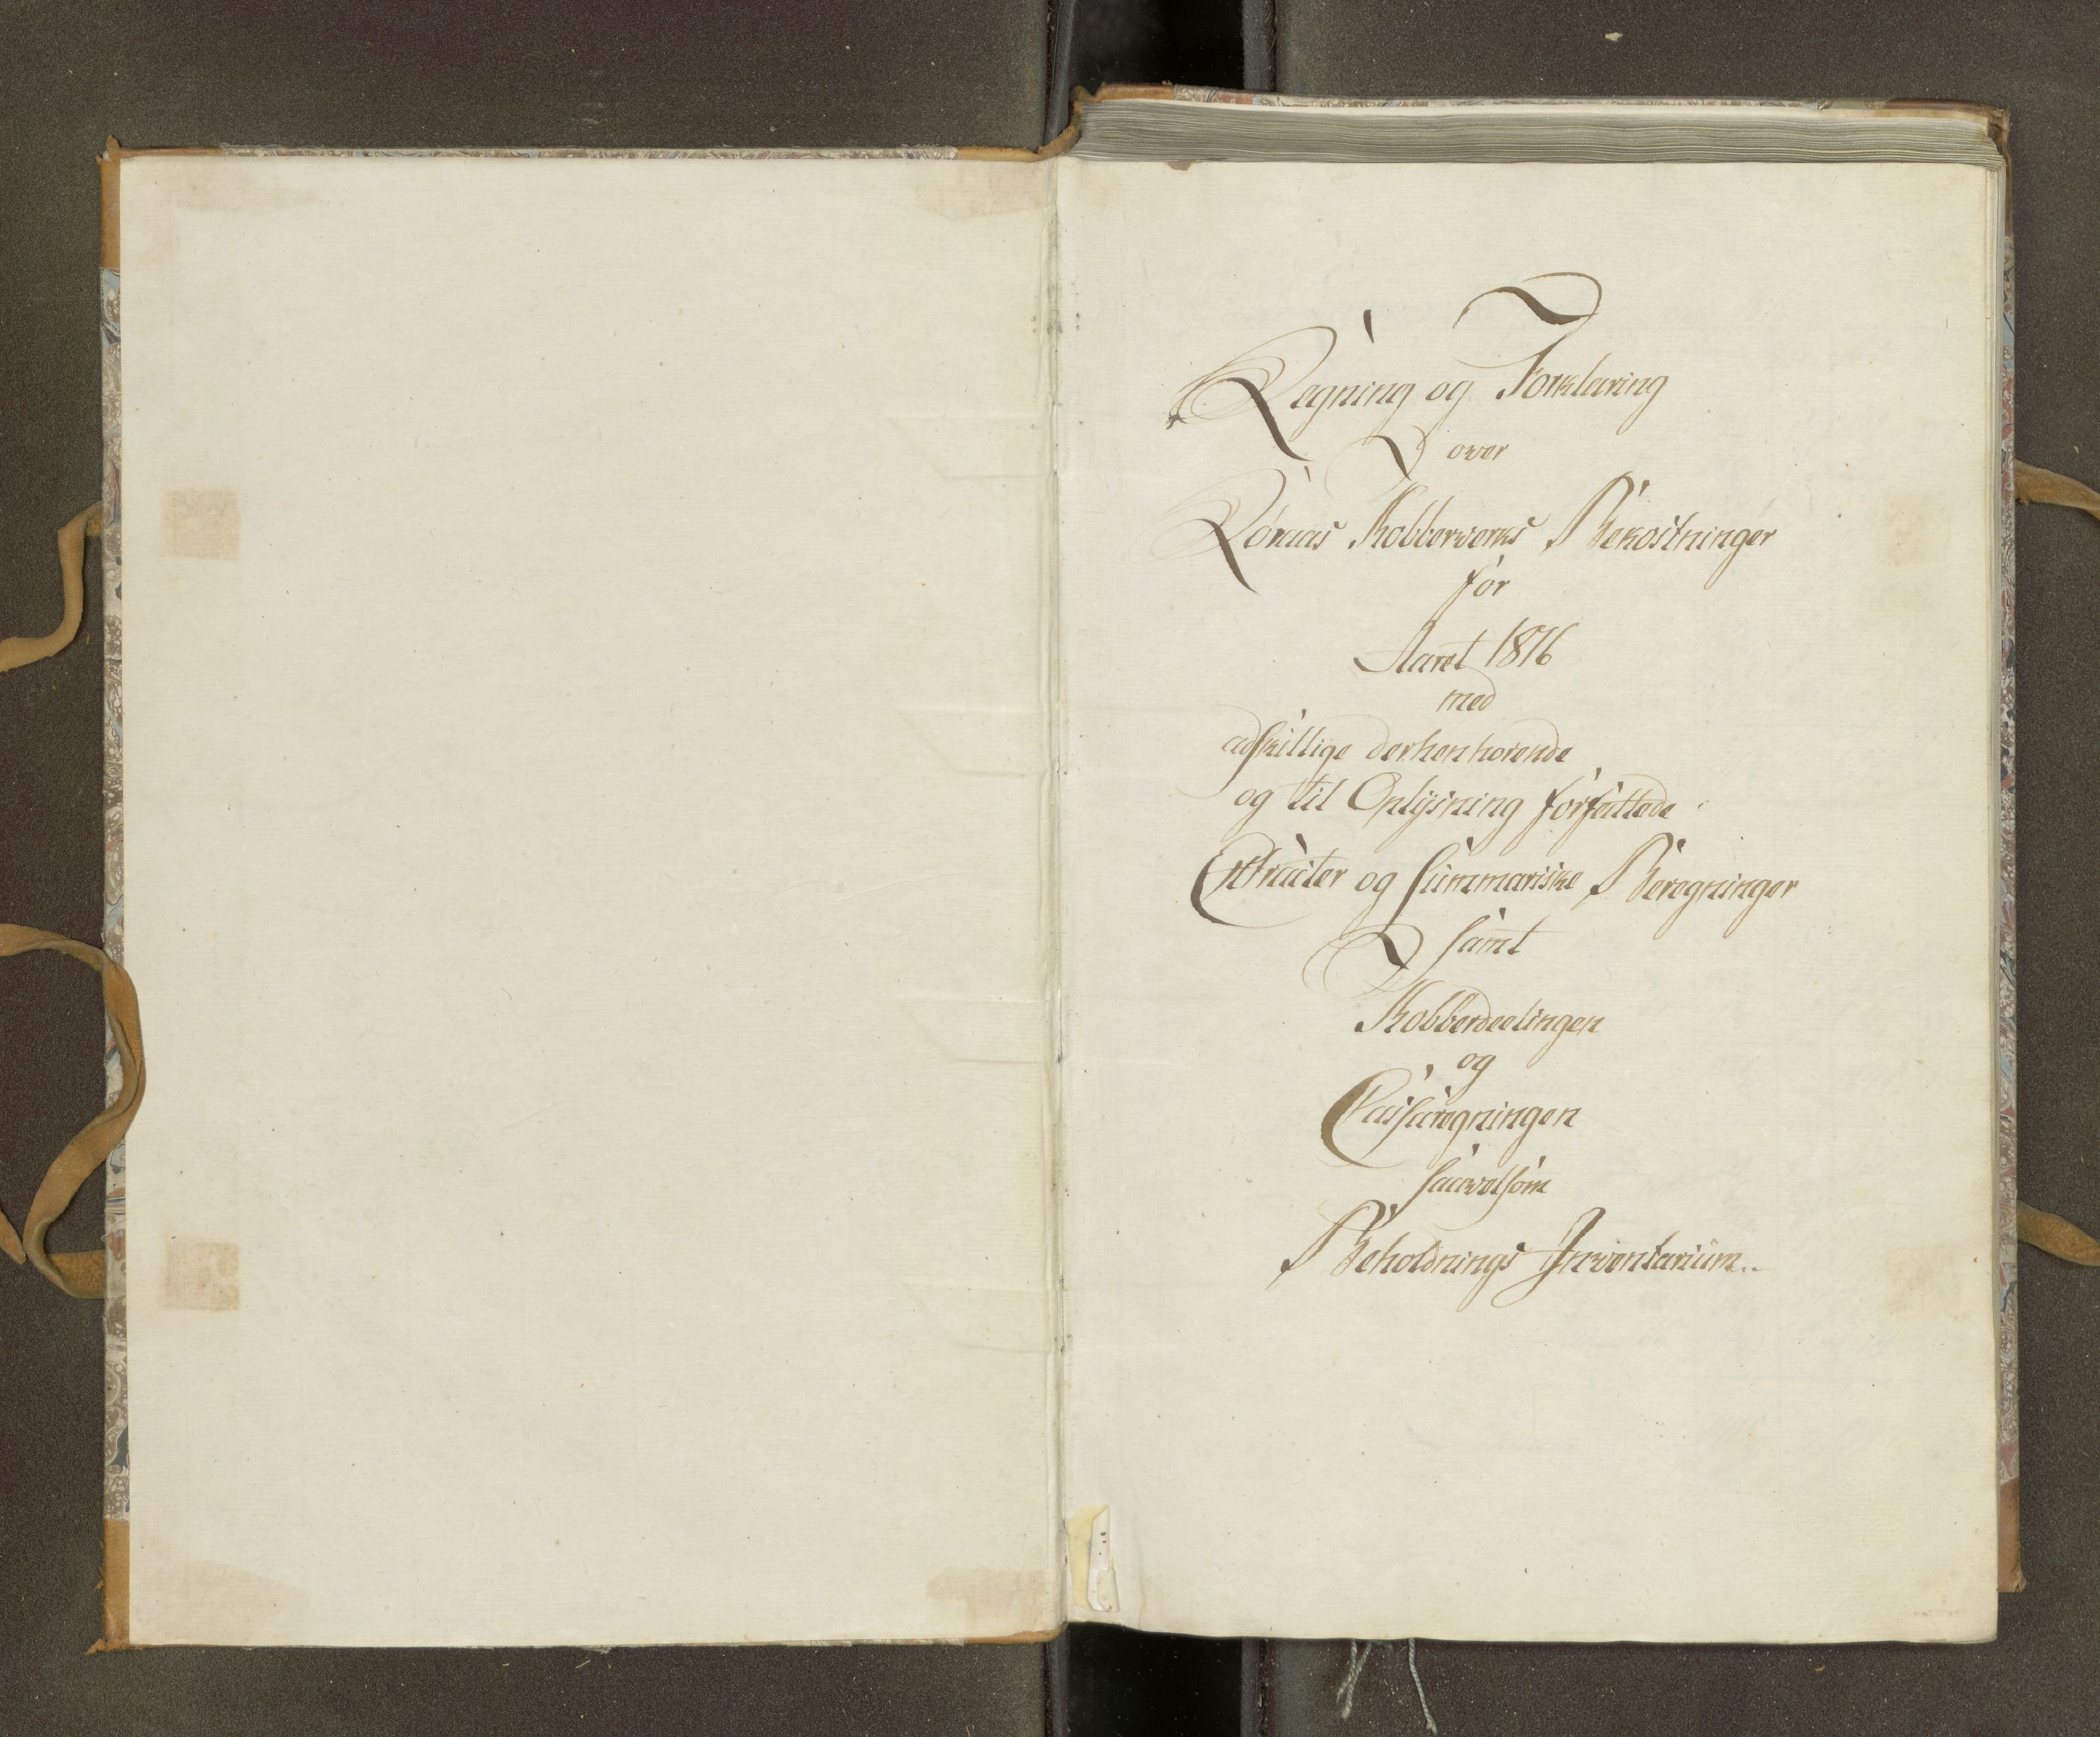 Regning og Forklaring
over
Röraas Kobberverks Bekostninger
for
Aaret 1816
med
adskillige derhenhörende
og til Oplysning forfattede
Extracter og Summariske Beregninger
samt
Kobberdeelingen
og
Cassaregningen
saavelsom
Beholdnings Inventarium..